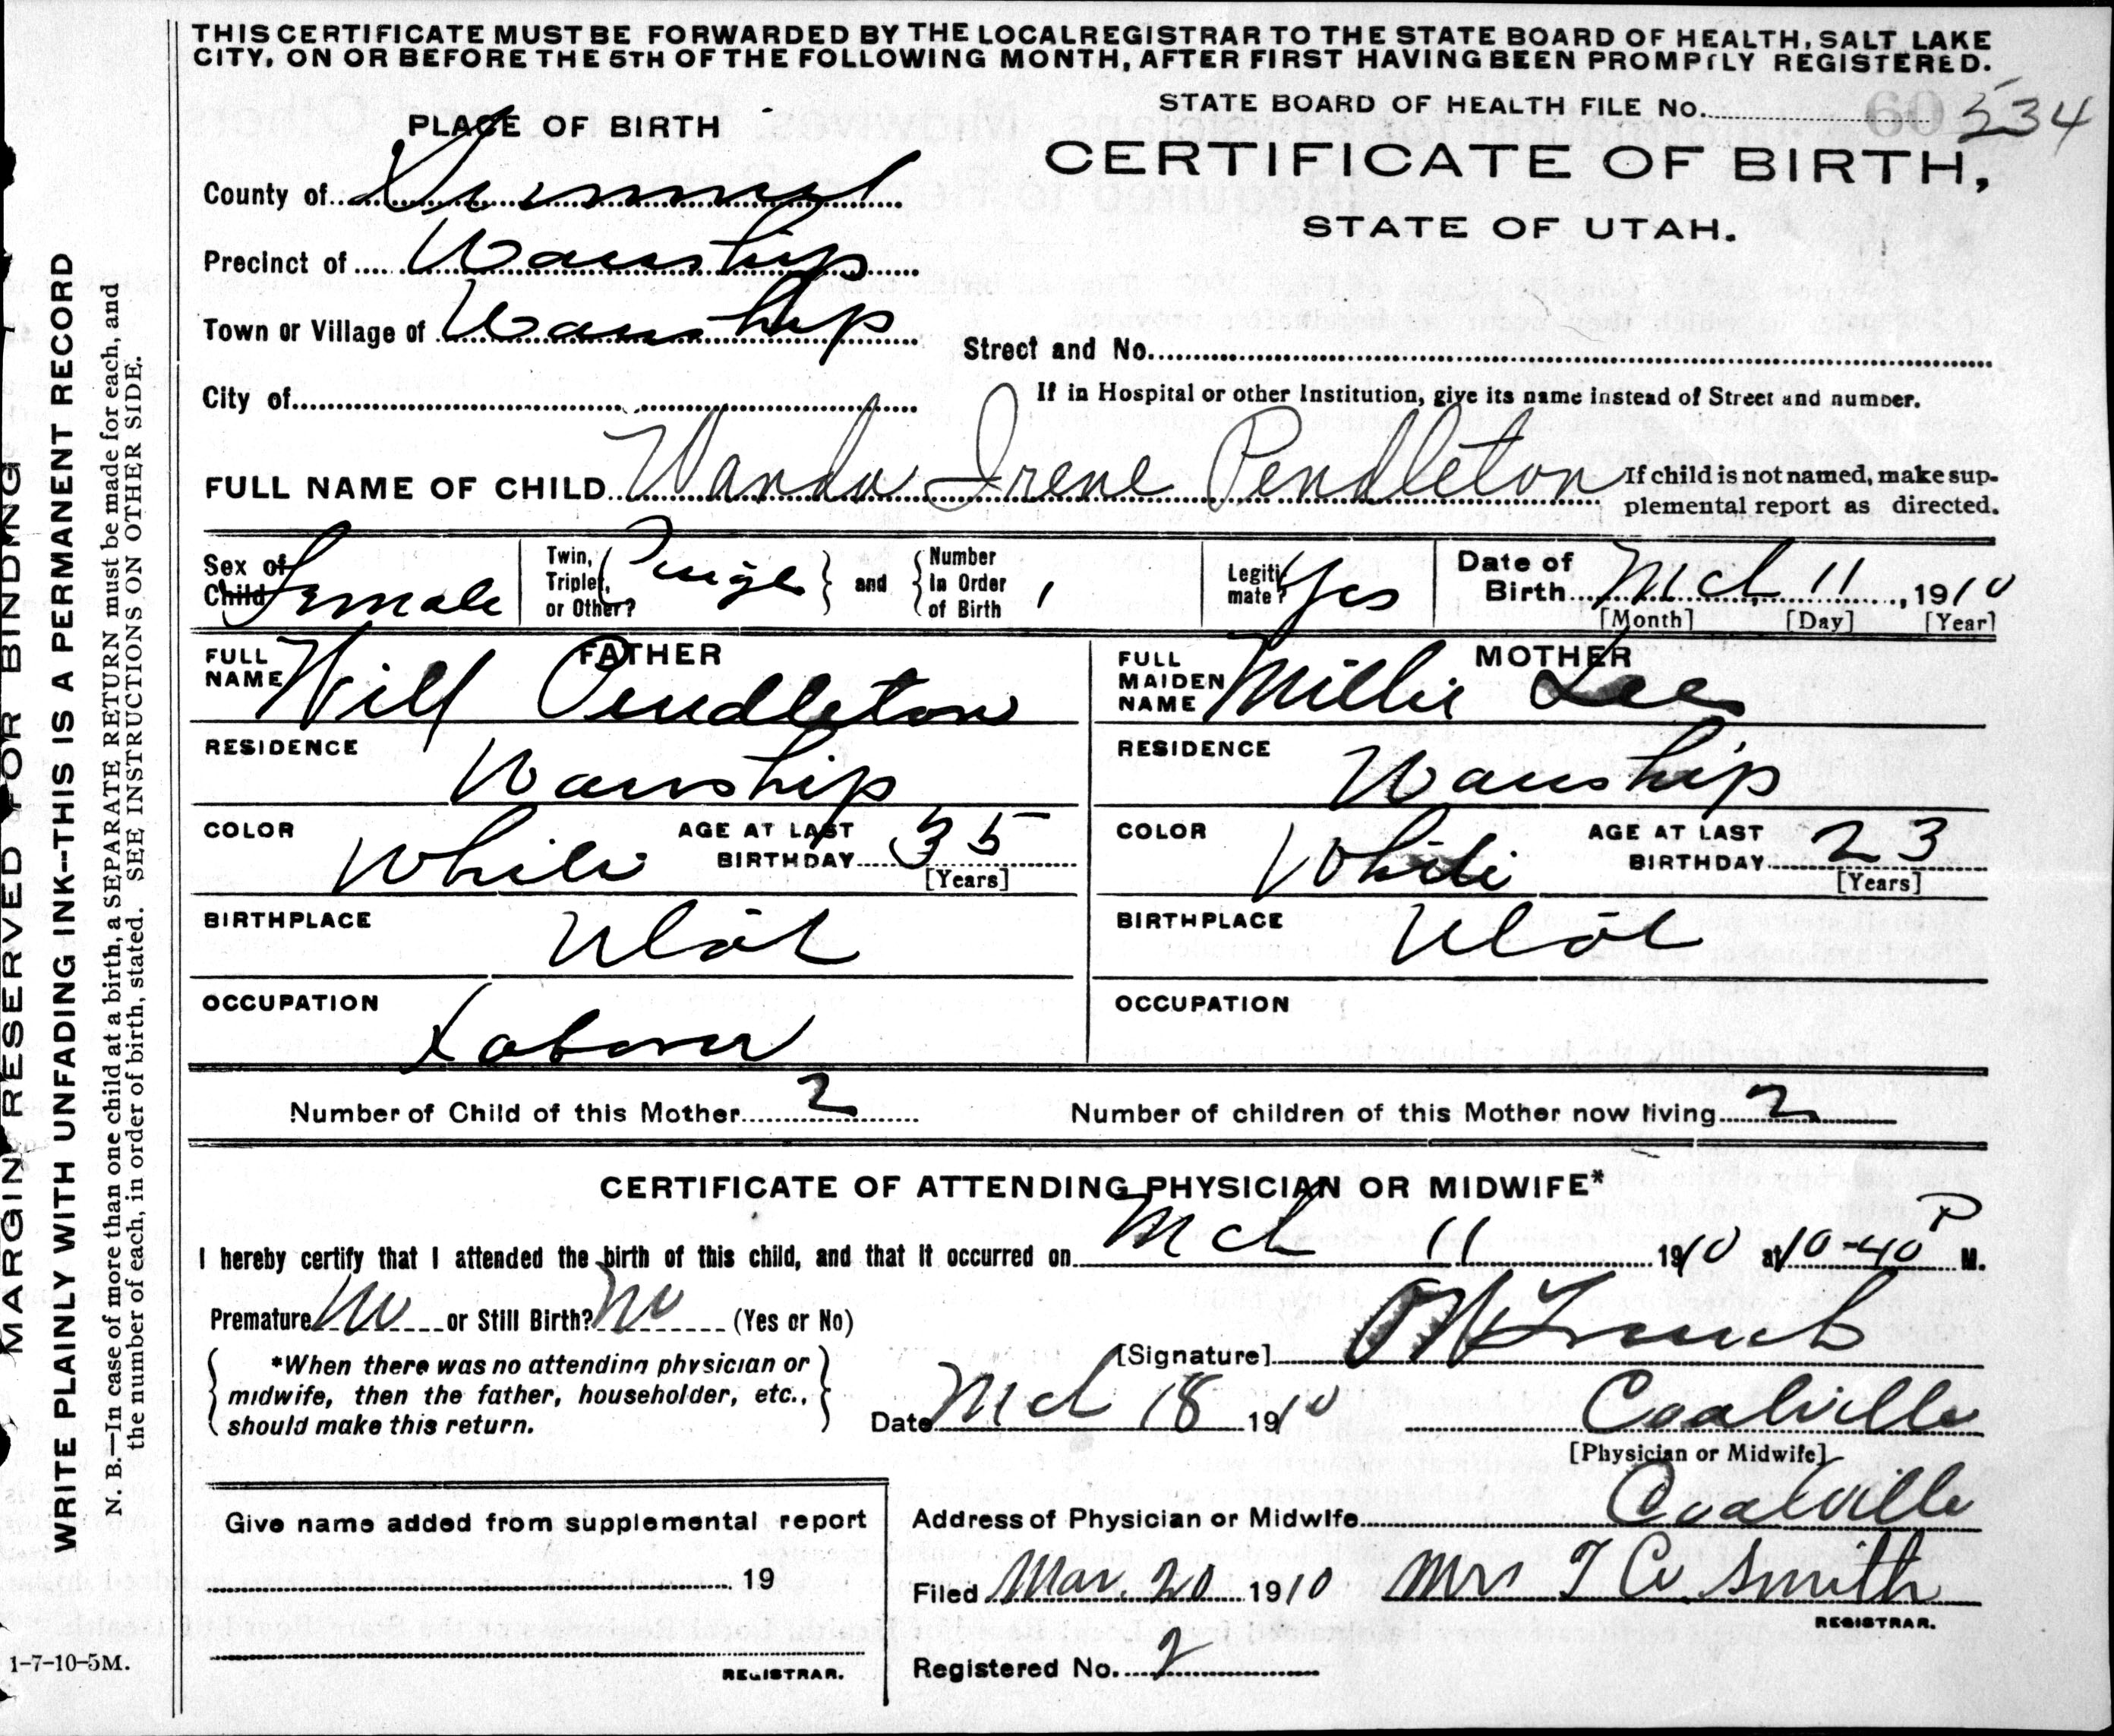 THIS CERTIFICATE MUST BE FORWARDED BY THE LOCAL REGISTRAR TO THE STATE BOARD OF HEALTH, SALT LAKE
CITY, ON OR BEFORE THE 5TH OF THE FOLLOWING MONTH, AFTER FIRST HAVING BEEN PROMPTLY REGISTERED.
STATE BOARD OF HEALTH FILE No. 60 534
PLACE OF BIRTH
CERTIFICATE OF BIRTH,
STATE OF UTAH.
County of Summit
Precinct of Wanship
Town or Village of Wanship
Street and No.
City of
If in Hospital or other Institution, give its name instead of Street and number.
FULL NAME OF CHILD Wanda Irene Pendleton
If child is not named, make sup-
plemental report as directed.
Sex of Child Female
Twin, Triplet, or Other?
and
Number in Order of Birth 1
Legitimate? Yes
Date of Birth Mch 11, 1910
[Month] [Day] [Year]
FATHER
FULL NAME Will Pendleton
MOTHER
FULL MAIDEN NAME Millie Lee
RESIDENCE Wanship
RESIDENCE Wanship
COLOR White AGE AT LAST BIRTHDAY 35 [Years]
COLOR White AGE AT LAST BIRTHDAY 23 [Years]
BIRTHPLACE Utah
BIRTHPLACE Utah
OCCUPATION Laborer
OCCUPATION
Number of Child of this Mother 2
Number of children of this Mother now living 2
CERTIFICATE OF ATTENDING PHYSICIAN OR MIDWIFE*
I hereby certify that I attended the birth of this child, and that it occurred on Mch 11 1910 at 10-40 P M.
Premature No or Still Birth? No (Yes or No)
[Signature]
*When there was no attending physician or
midwife, then the father, householder, etc.,
should make this return.
Date Mch 18 1910 Coalville
[Physician or Midwife]
Give name added from supplemental report
19
REGISTRAR.
Address of Physician or Midwife Coalville
Filed Mar. 20 1910 Mrs T C Smith
REGISTRAR.
Registered No. 2
1-7-10-5M.
MARGIN RESERVED FOR BINDING
WRITE PLAINLY WITH UNFADING INK--THIS IS A PERMANENT RECORD
N. B.—In case of more than one child at a birth, a SEPARATE RETURN must be made for each, and
the number of each, in order of birth, stated. SEE INSTRUCTIONS ON OTHER SIDE.